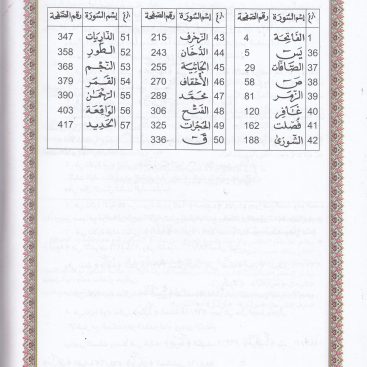 رع إسم السورة رقم الصفحة
1 الفاتحة 4
36 يس 5
37 الصافات 29
38 ص 58
39 الزمر 81
40 غافر 120
41 فصلت 162
42 الشورى 188
رع إسم السورة رقم الصفحة
43 الزخرف 215
44 الدخان 243
45 الجاثية 255
46 الأحقاف 270
47 محمد 289
48 الفتح 306
49 الحجرات 325
50 ق 336
رع إسم السورة رقم الصفحة
51 الذاريات 347
52 الطور 358
53 النجم 368
54 القمر 379
55 الرحمن 390
56 الواقعة 403
57 الحديد 417